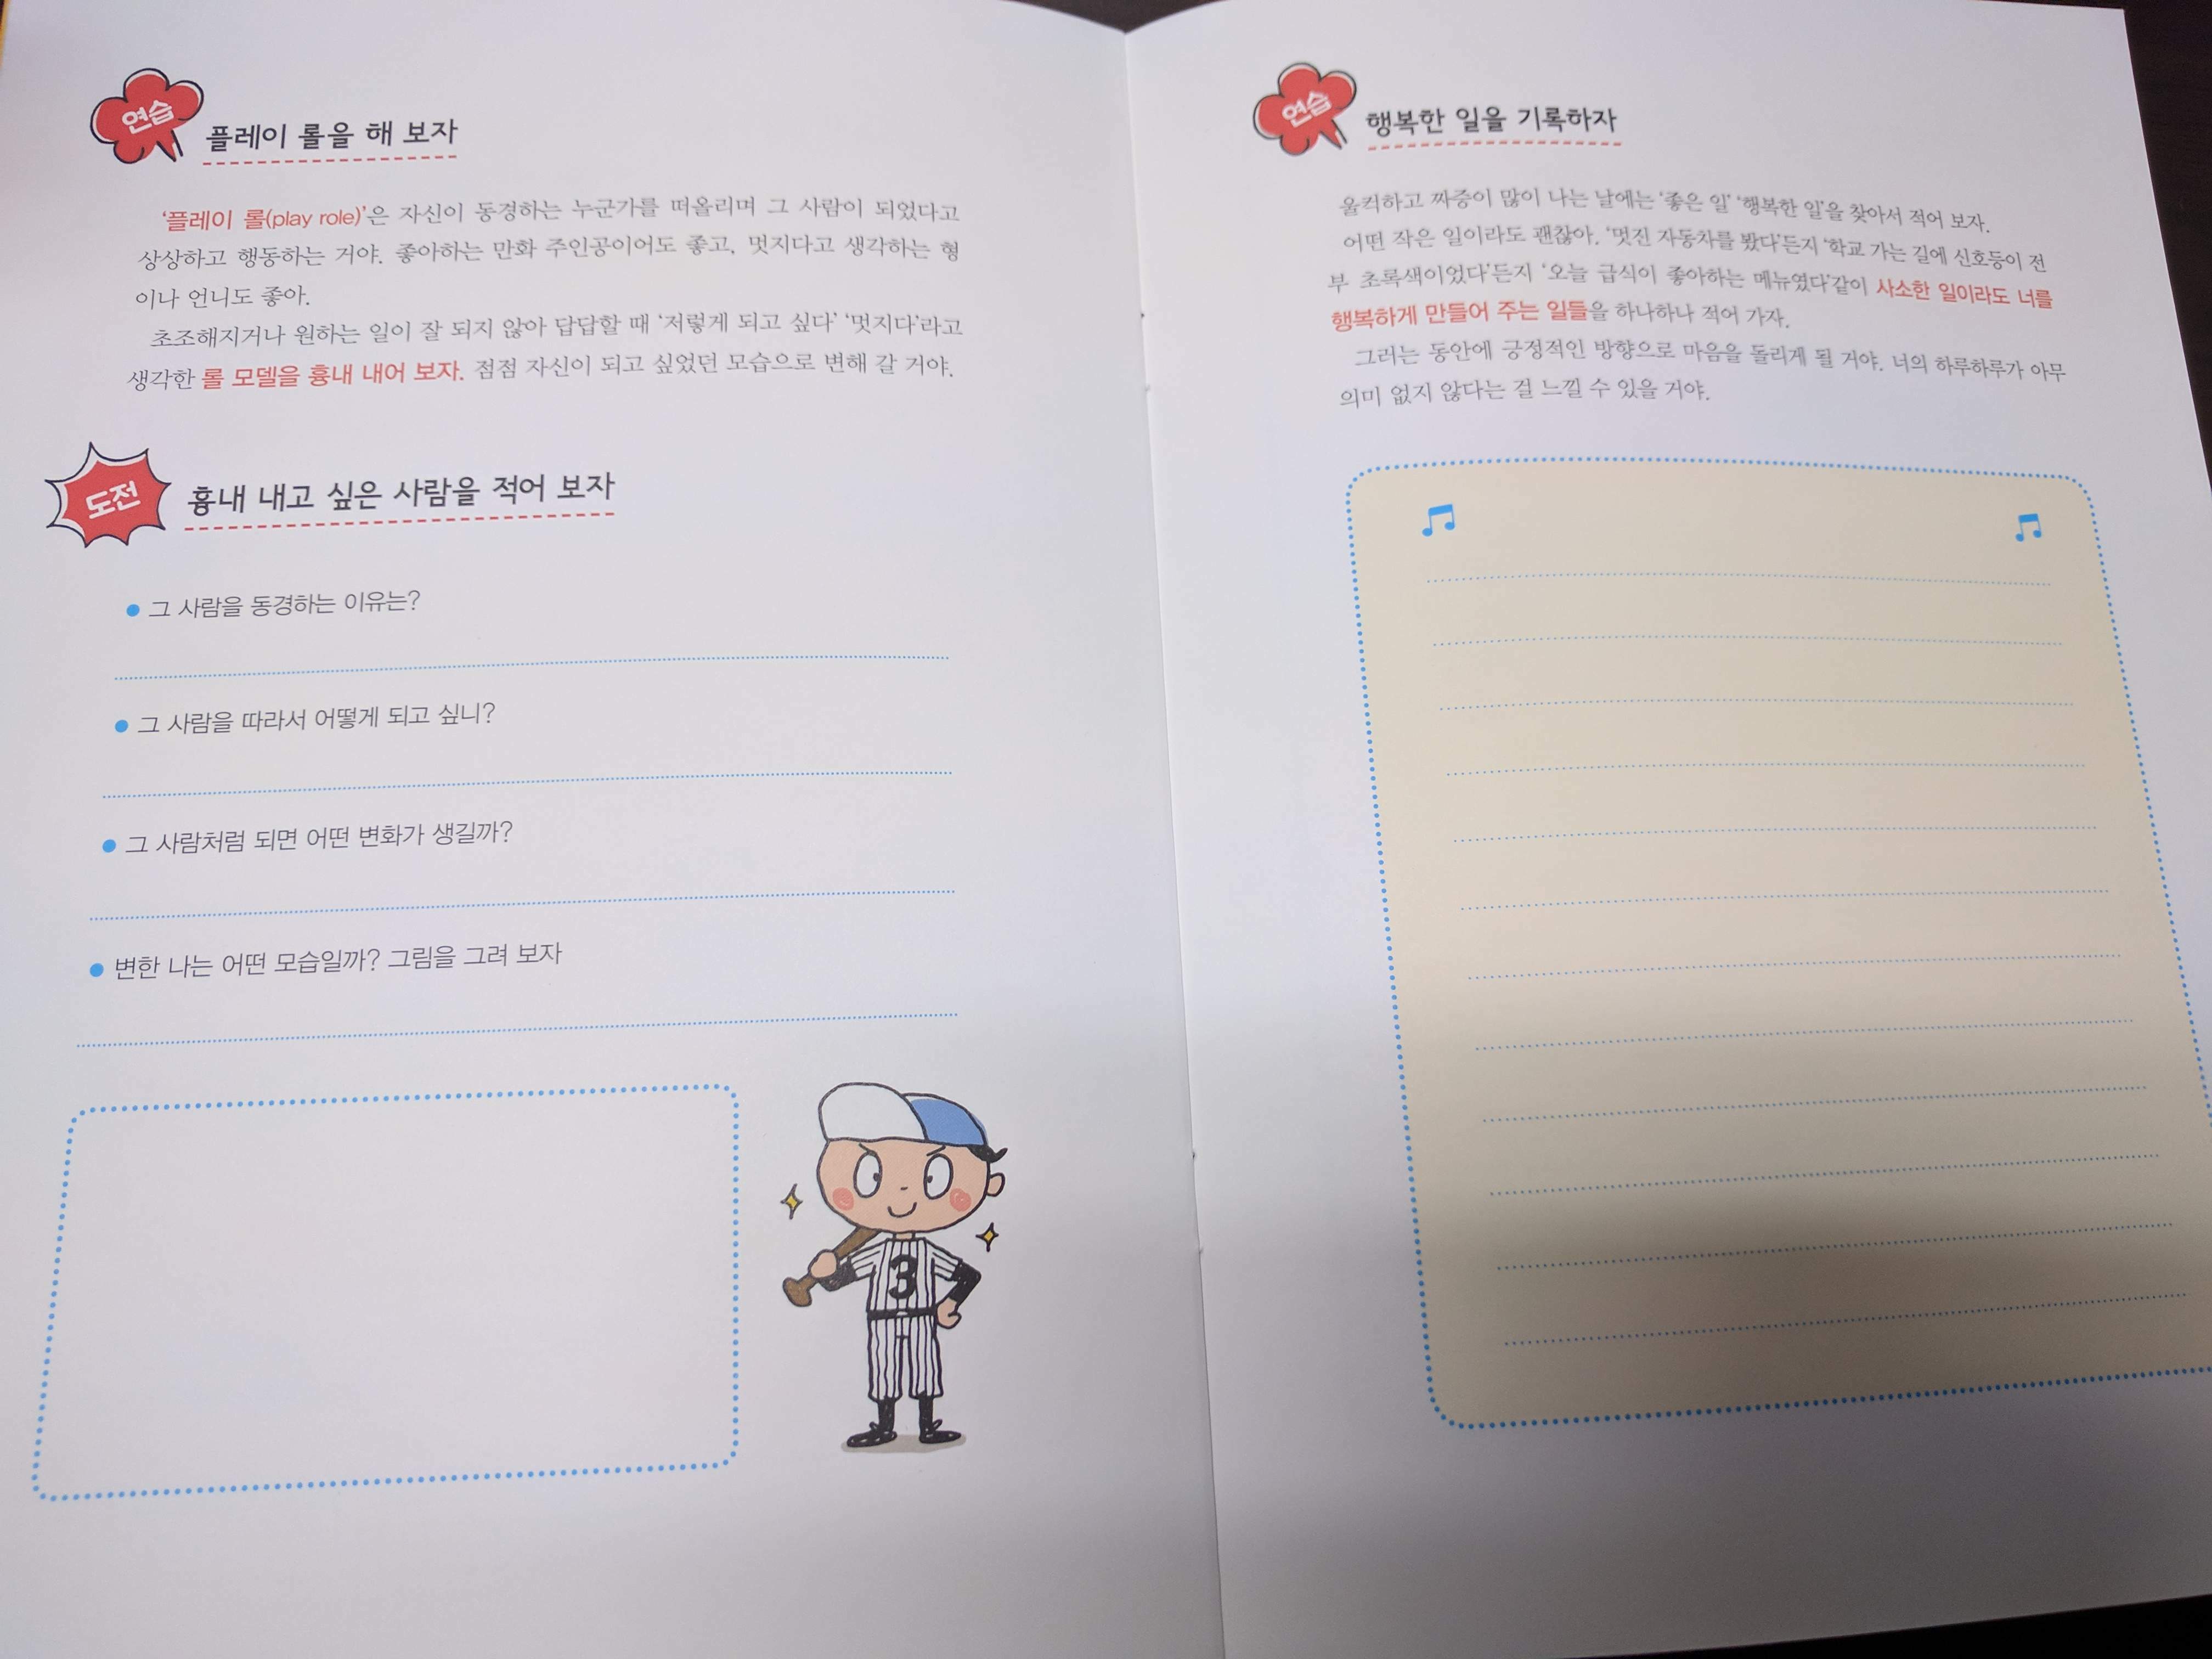 연습
플레이 롤을 해 보자
‘플레이 롤(play role)’은 자신이 동경하는 누군가를 떠올리며 그 사람이 되었다고
상상하고 행동하는 거야. 좋아하는 만화 주인공이어도 좋고, 멋지다고 생각하는 형
이나 언니도 좋아.
초조해지거나 원하는 일이 잘 되지 않아 답답할 때 ‘저렇게 되고 싶다’ ‘멋지다’라고
생각한 롤 모델을 흉내 내어 보자. 점점 자신이 되고 싶었던 모습으로 변해 갈 거야.
도전
흉내 내고 싶은 사람을 적어 보자
그 사람을 동경하는 이유는?
그 사람을 따라서 어떻게 되고 싶니?
그 사람처럼 되면 어떤 변화가 생길까?
변한 나는 어떤 모습일까? 그림을 그려 보자
3
연습
행복한 일을 기록하자
울컥하고 짜증이 많이 나는 날에는 ‘좋은 일’ ‘행복한 일’을 찾아서 적어 보자.
어떤 작은 일이라도 괜찮아. ‘멋진 자동차를 봤다’든지 ‘학교 가는 길에 신호등이 전
부 초록색이었다’든지 ‘오늘 급식이 좋아하는 메뉴였다’같이 사소한 일이라도 너를
행복하게 만들어 주는 일들을 하나하나 적어 가자.
그러는 동안에 긍정적인 방향으로 마음을 돌리게 될 거야. 너의 하루하루가 아무
의미 없지 않다는 걸 느낄 수 있을 거야.